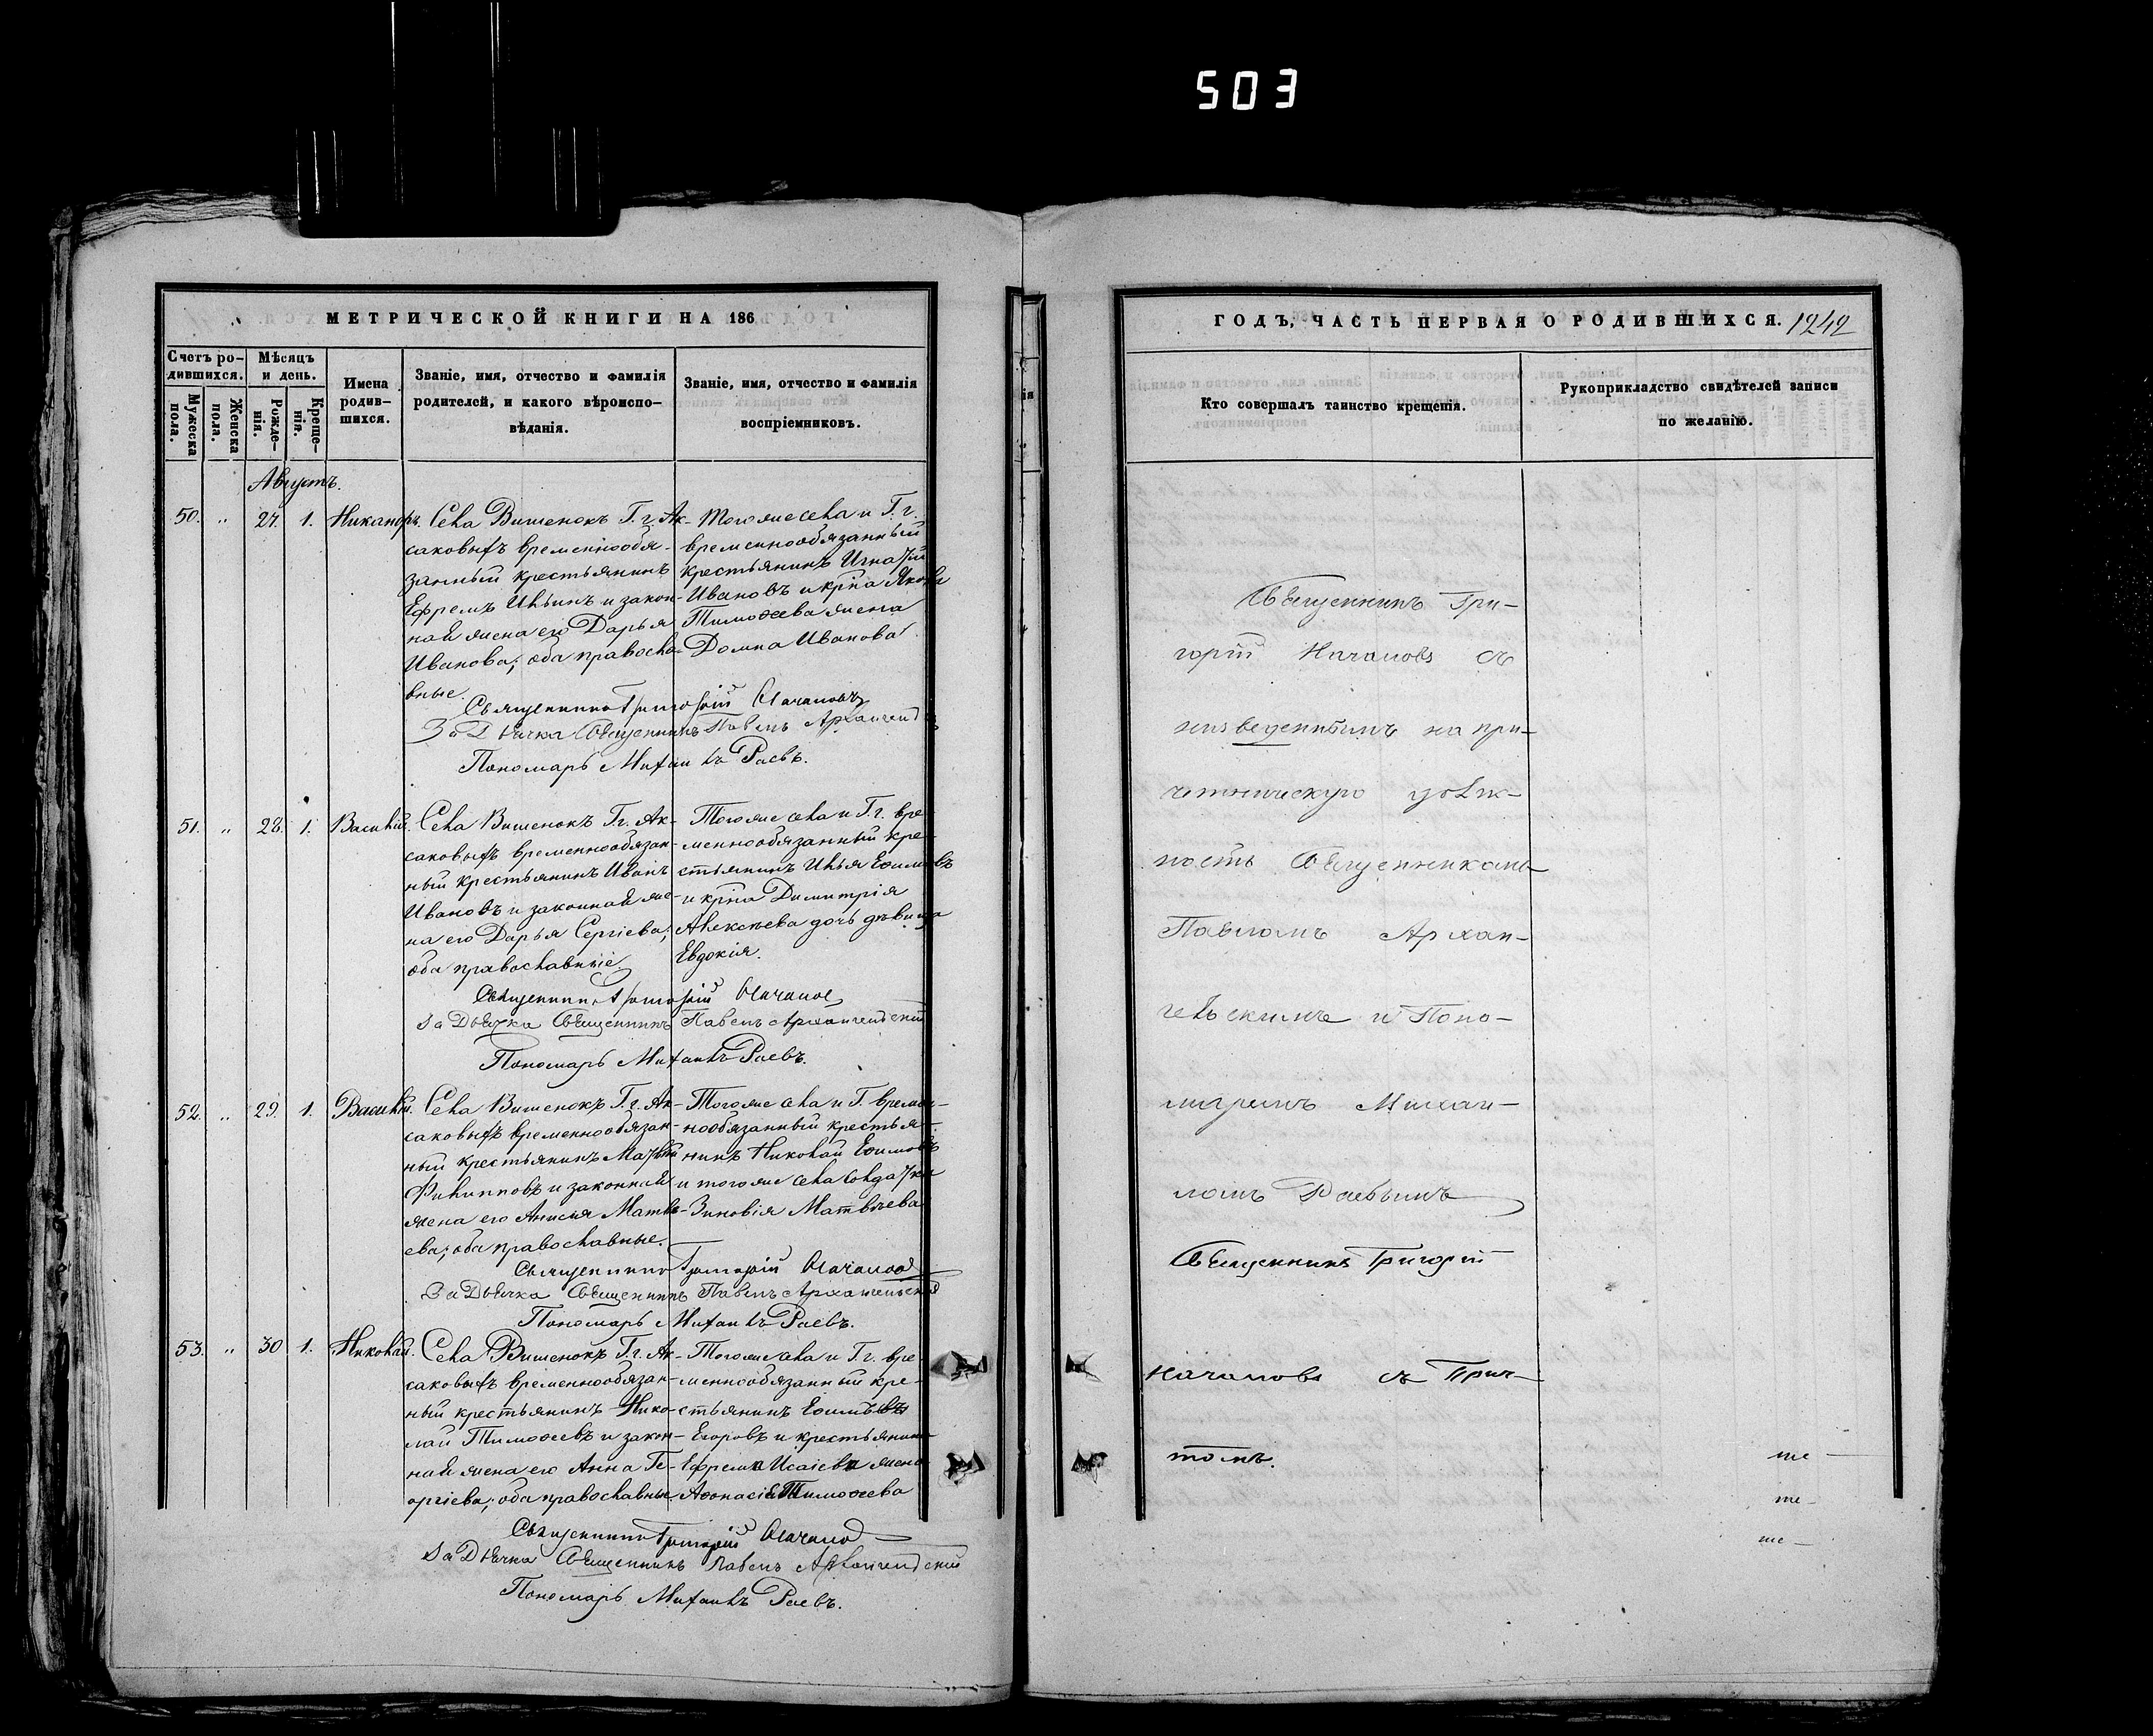 503
МЕТРИЧЕСКОЙ КНИГИ НА 186
Счетъ ро-
дившихся.
Мужеска
пола.
Женска
пола.
Мѣсяцъ
и день.
Рожде-
нія.
Креще-
нія.
Имена
родив-
шихся.
Званіе, имя, отчество и фамилія
родителей, и какого вѣроиспо-
вѣданія.
Званіе, имя, отчество и фамилія
воспріемниковъ.
Августъ.
50. " 27. 1. Никаноръ.
Села Вишенокъ Г. г. Ак-
саковыхъ временнообя-
занный крестьянинъ
Ефремъ Ильинъ и закон-
ная жена его Дарья
Иванова; оба правосла-
вные.
Тогоже села и Г. г.
временнообязанный
крестьянинъ Игнатій
Ивановъ и крна Якова
Тимоѳеева жена
Домна Иванова
Священникъ Григорій Начановъ
За Дьячка Священникъ Павелъ Архангельскій
Пономарь Михаилъ Раевъ.
51. " 28. 1. Василій.
Села Вишенокъ Г. г. Ак-
саковыхъ временнообязан-
ный крестьянинъ Иванъ
Ивановъ и законная же-
на его Дарья Сергіева;
оба православные.
Тогоже села и Г. г. вре-
меннообязанный кре-
стьянинъ Илья Еѳимовъ
и крна Димитрія
Алексѣева дочь дѣвица
Евдокія.
Священникъ Григорій Начановъ
За Дьячка Священникъ Павелъ Архангельскій
Пономарь Михаилъ Раевъ.
52. " 29. 1. Василій.
Села Вишенокъ Г. г. Ак-
саковыхъ временнообязан-
ный крестьянинъ Матвѣй
Филипповъ и законная
жена его Анисія Матвѣ-
ева; оба православные.
Тогоже села и Г. времен-
нообязанный крестья-
нинъ Николай Еѳимовъ
и тогоже села солдатка
Зиновія Матвѣева
Священникъ Григорій Начановъ
За Дьячка Священникъ Павелъ Архангельскій
Пономарь Михаилъ Раевъ.
53. " 30 1. Николай.
Села Вишенокъ Г. г. Ак-
саковыхъ временнообязан-
ный крестьянинъ Нико-
лай Тимоѳеевъ и закон-
ная жена его Анна Ге-
оргіева; оба православные.
Тогоже села и Г. г. вре-
меннообязанный кре-
стьянинъ Еѳимъ
Егоровъ и крестьянина
Ефрема Исаіева жена
Аѳанасія Тимоѳеева
Священникъ Григорій Начановъ
За Дьячка Священникъ Павелъ Архангельскій
Пономарь Михаилъ Раевъ.
ГОДЪ, ЧАСТЬ ПЕРВАЯ О РОДИВШИХСЯ. 1242
Кто совершалъ таинство крещенія.
Рукоприкладство свидѣтелей записи
по желанію.
Священникъ Гри-
горій Начановъ съ
низведеннымъ на при-
четническую долж-
ность Священникомъ
Павломъ Архан-
гельскимъ и Поно-
маремъ Михаи-
ломъ Раевымъ
Священникъ Григорій
Начановъ съ Прич-
томъ.